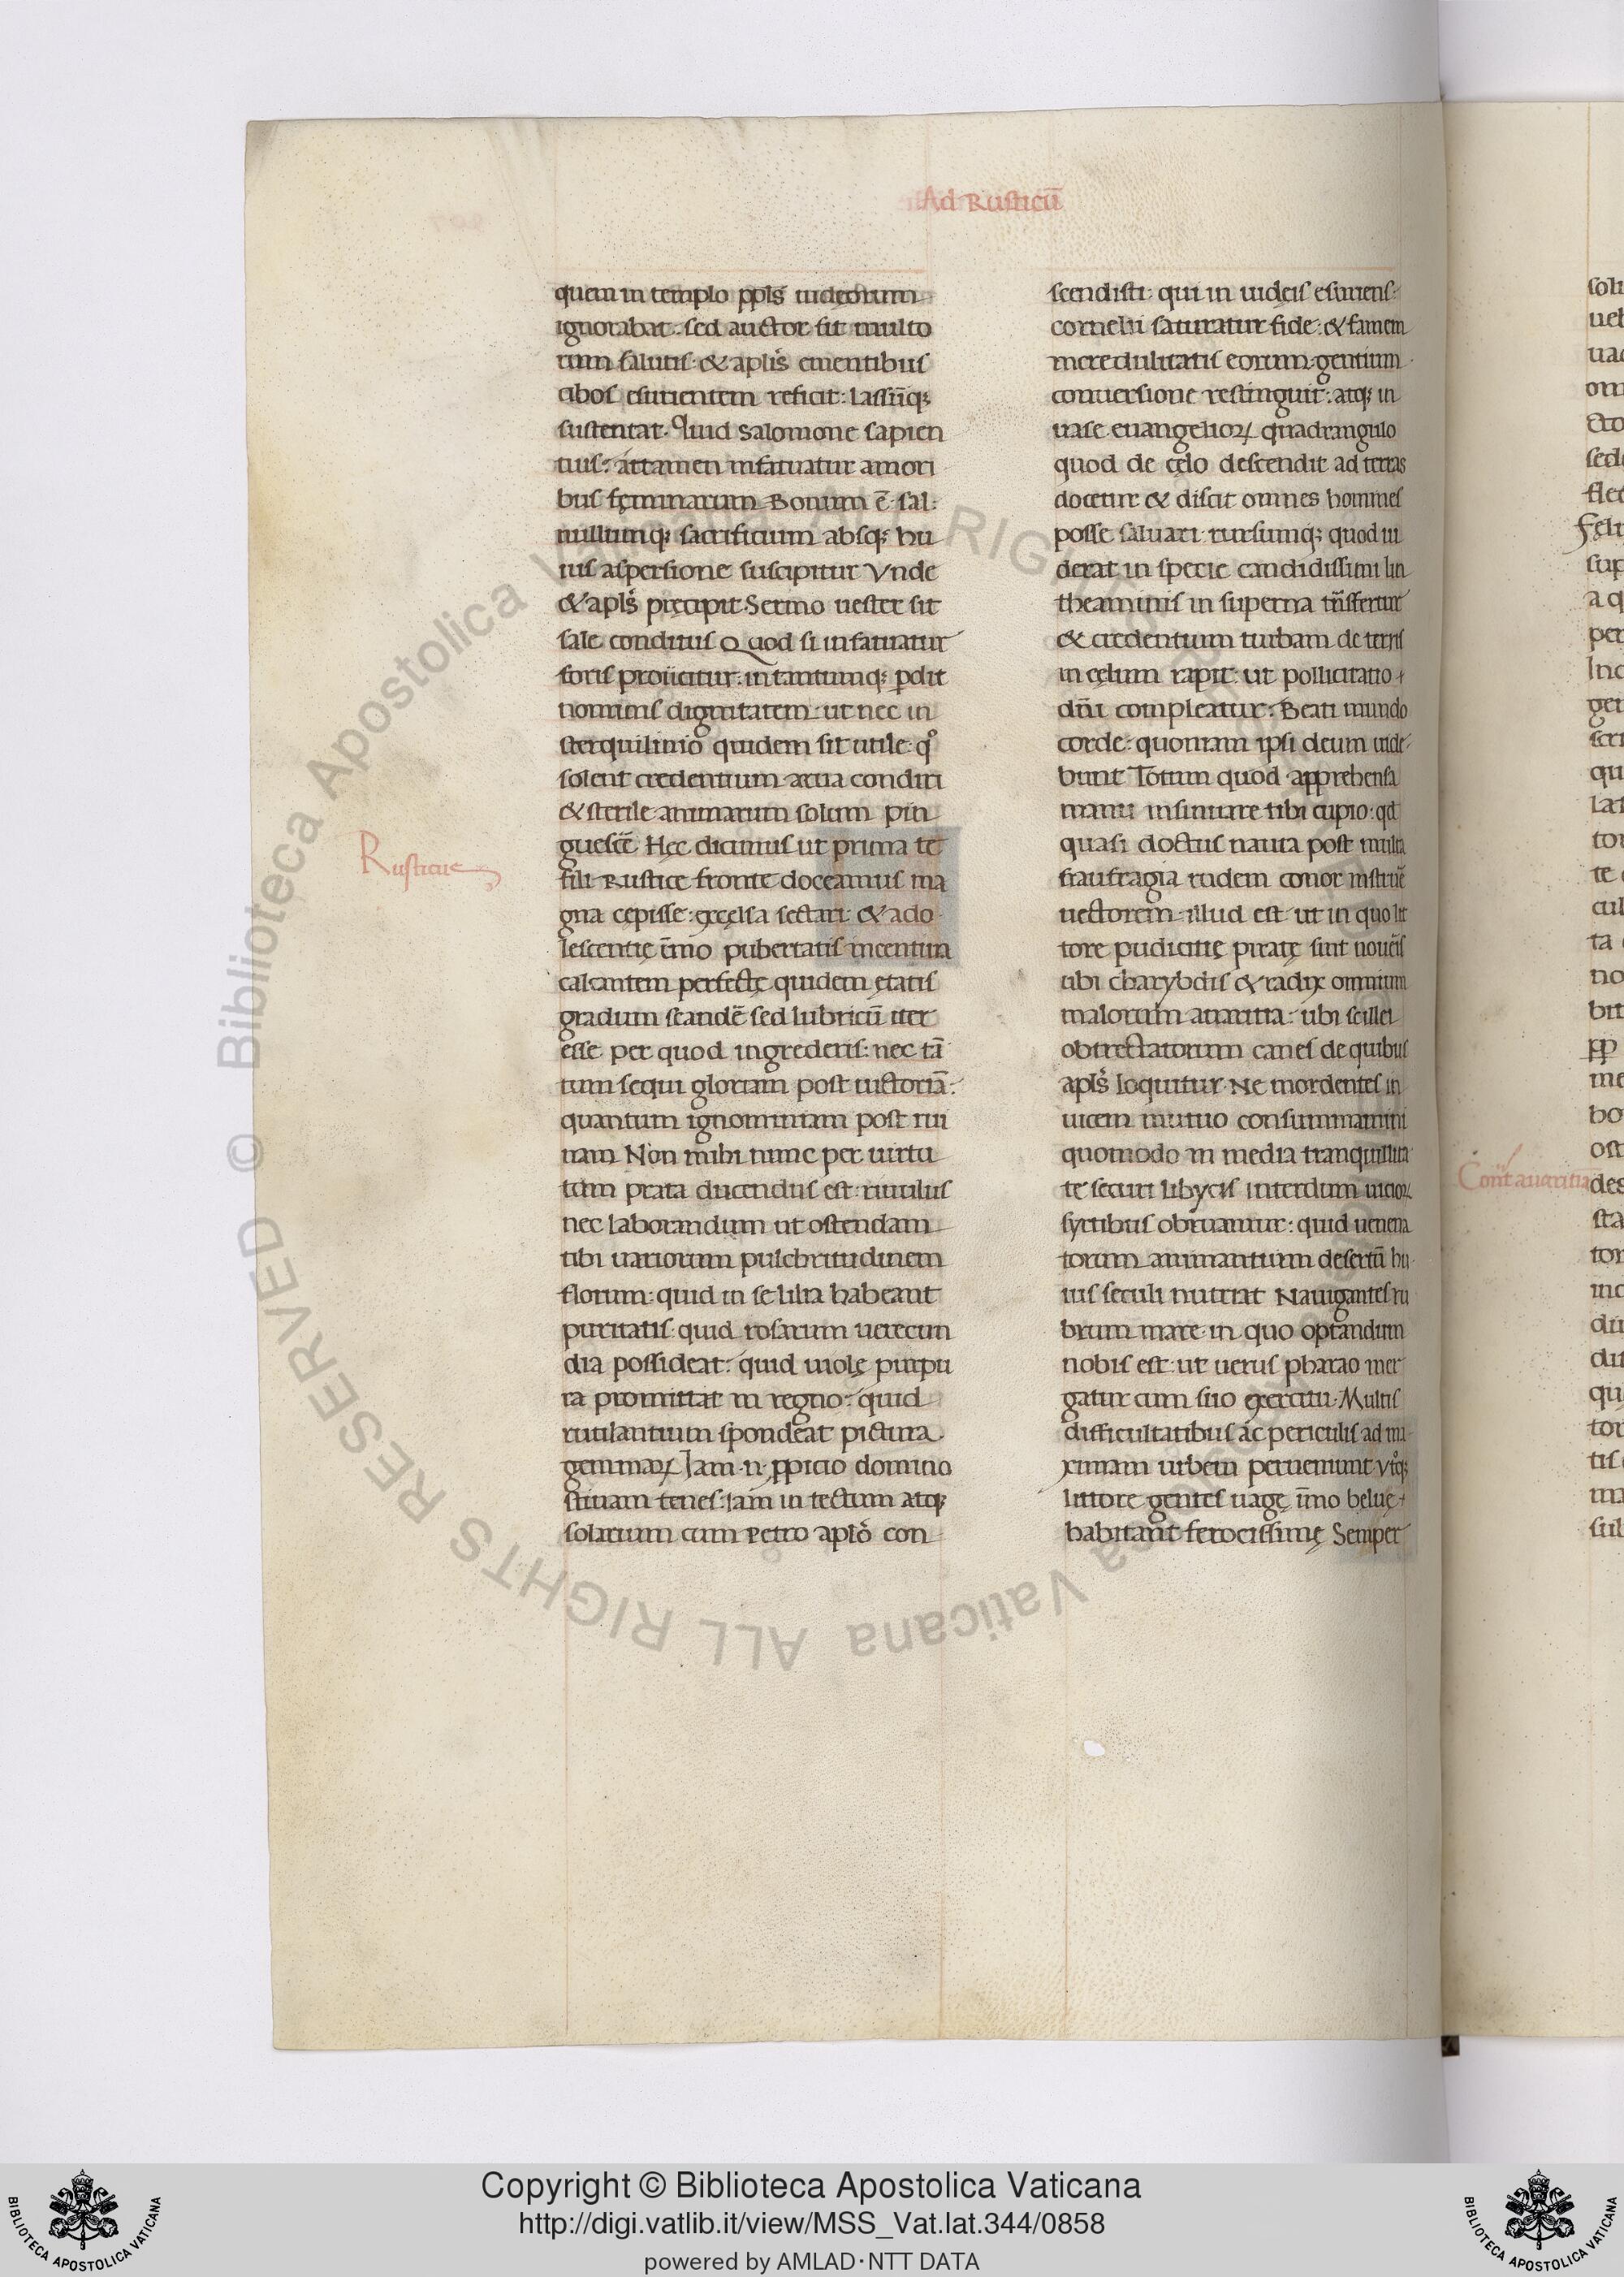 Ad Rusticū
quem in templo ppl̅s iudęorum
ignorabat: sed auctor sit multo
rum salutis: & apl̅s ementibus
cibos esurientem reficit: lassūq;
sustentat. Quid Salomone sapien
tius: attamen infatuatur amori
bus fęminarum Bonum ē sal:
nullumq; sacrificium absq; hu
ius aspersione suscipitur Vnde
& apl̅s pręcipit Sermo uester sit
sale conditus Quod si infatuatur
foris proiicitur: in tantumq; perdit
nominis dignitatem: ut nec in
sterquilinio quidem sit utile: qͦ
solent credentium arua condiri
& sterile animarum solum pin
guescē. Hęc dicimus ut prima te
fili Rustice fronte doceamus ma
gna cępisse: excelsa sectari: & ado
lescentię īmo pubertatis incentiua
calcantem perfectę quidem ętatis
gradum scandē sed lubricū iter
esse per quod ingrederis: nec tā
tum sequi gloriam post uictoriā:
quantum ignominiam post rui
nam Non mihi nunc per uirtu
tum prata ducendus est riuulus
nec laborandum ut ostendam
tibi uariorum pulchritudinem
florum: quid in se lilia habeant
puritatis quid rosarum uerecun
dia possideat: quid uiolę purpu
ra promittat in regno: quid
rutilantium spondeat pictura
gemmaꝝ Jam .n. ꝓpicio domino
stiuam tenes: iam in tectum atq;
solarium cum Petro aplō con
Rusticus
scendisti: qui in iudeis esuriens:
cornelii saturatur fide: & famem
incredulitatis eorum gentium
conuersione restinguit: atq; in
uase euangelioꝝ quadrangulo
quod de cęlo descendit ad terras
docetur & discit omnes homines
posse saluari rursumq; quod ui
derat in specie candidissimi lin
theaminis in superna trāsfertur
& credentium turbam de terris
in cęlum rapit: ut pollicitatio
dn̄i compleatur: Beati mundo
corde: quoniam ipsi deum uide
bunt Totum quod apprehensa
manu insinuare tibi cupio: qd
quasi doctus nauta post multa
fraufragia rudem conor instruē
uectorem illud est ut in quo lit
tore pudicitię piratę sint noueris
ubi charybdis & radix omnium
malorum auaritia: ubi scillei
obtrectatorum canes de quibus
apl̅s loquitur Ne mordentes in
uicem mutuo consummamini
quomodo in media tranquillita
te securi libycis interdum uicioꝝ
syrtibus obruantur: quid uenena
torum animantium desertū hu
ius seculi nutriat Nauigantes ru
brum mare in quo optandum
nobis est ut uerus pharao mer
gatur cum suo exercitu Multis
difficultatibus ac periculis ad ma
ximam urbem perueniunt Vtroq;
littore gentes uagę īmo beluę
habitant ferocissimę Semper
Cont̄ auaritiā
Copyright © Biblioteca Apostolica Vaticana
http://digi.vatlib.it/view/MSS_Vat.lat.344/0858
powered by AMLAD·NTT DATA
© Biblioteca Apostolica Vaticana ALL RIGHTS RESERVED
BIBLIOTECA APOSTOLICA VATICANA
BIBLIOTECA APOSTOLICA VATICANA